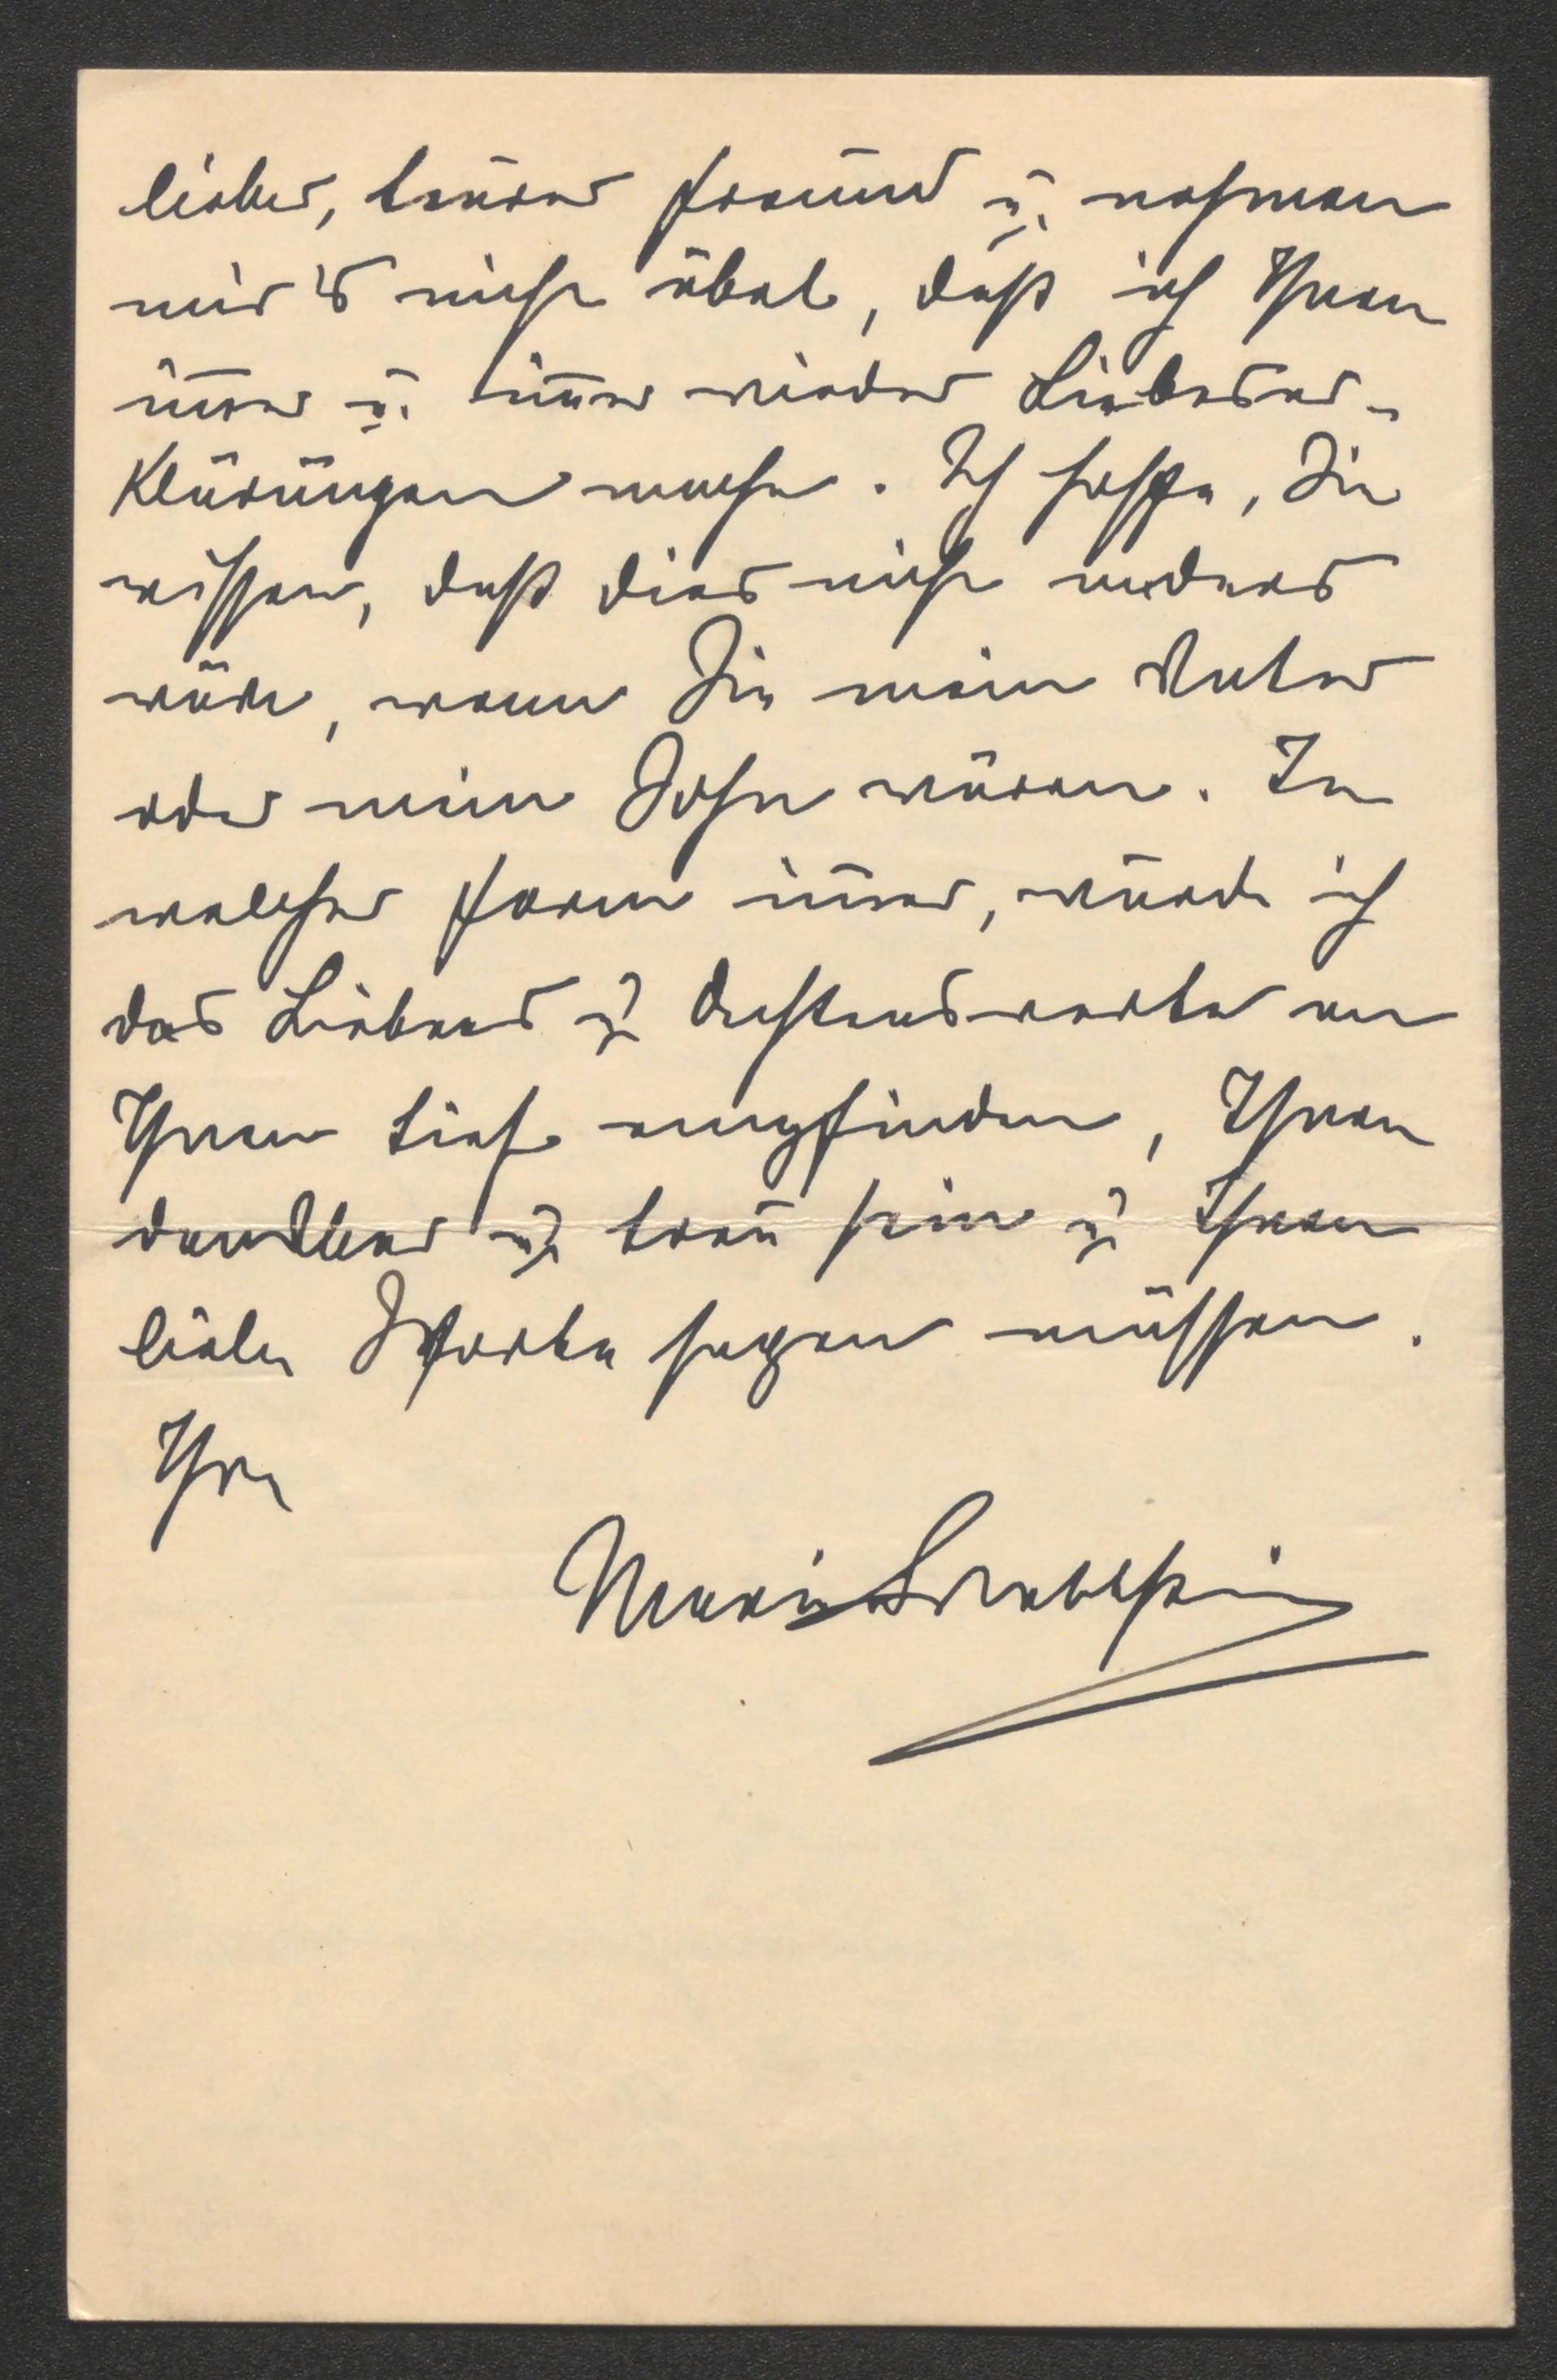 lieber, teurer Freund u. nehmen
mir's nicht übel, daß ich Ihnen
im̅er u. im̅er wieder Liebeser-
klärungen mache. Ich hoffe, Sie
wissen, daß dies nicht anders
wäre, wenn Sie mein Vater
oder mein Sohn wären. In
welcher Form im̅er, würde ich
das Liebens u. Achtenswerte an
Ihnen tief empfinden, Ihnen
dankbar u. treu sein u. Ihnen
liebe Worte sagen müssen.
Ihre
Marie